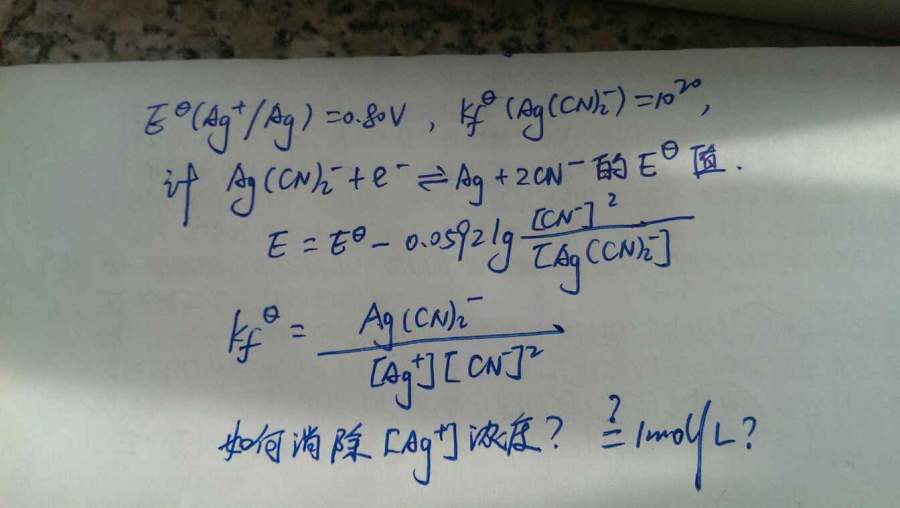 E^θ(Ag⁺/Ag)=0.80V, Kf^θ(Ag(CN)₂⁻)=10²⁰,
计 Ag(CN)₂⁻+e⁻⇌Ag+2CN⁻的E^θ值.
E = E^θ - 0.0592lg [CN⁻]²/[Ag(CN)₂⁻]
Kf^θ = Ag(CN)₂⁻/[Ag⁺][CN⁻]²
如何消除[Ag⁺]浓度? ?= 1mol/L?